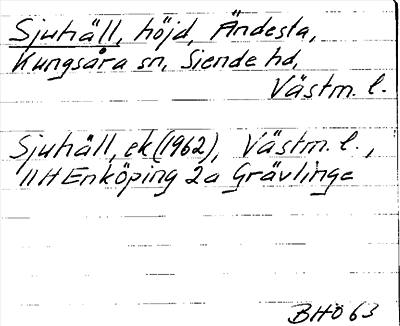 Sjuhäll, höjd, Ändesta,
Kungsåra sn, Siende hd,
Västm. l.
Sjuhäll, ek (1962), Västm. l.,
11H Enköping 2a Grävlinge
BHO 63